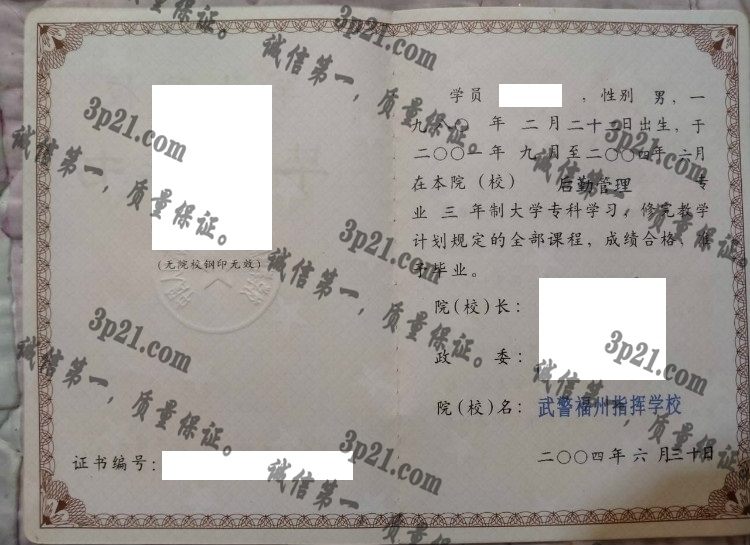 (无院校钢印无效)
证书编号:
学员 ,性别 男,一
九 〇 年 二 月 二十 日出生,于
二〇〇 年 九 月至二〇〇四年 六月
在本院(校) 后勤管理 专
业 三 年制大学专科学习,修完教学
计划规定的全部课程,成绩合格,准
予毕业。
院(校)长:
政 委:
院(校)名: 武警福州指挥学校
二〇〇四年 六 月三十日
3p21.com
诚信第一,质量保证。
3p21.com
诚信第一,质量保证。
3p21.com
诚信第一,质量保证。
3p21.com
诚信第一,质量保证。
3p21.com
诚信第一,质量保证。
3p21.com
诚信第一,质量保证。
3p21.com
诚信第一,质量保证。
3p21.com
诚信第一
质量保证。